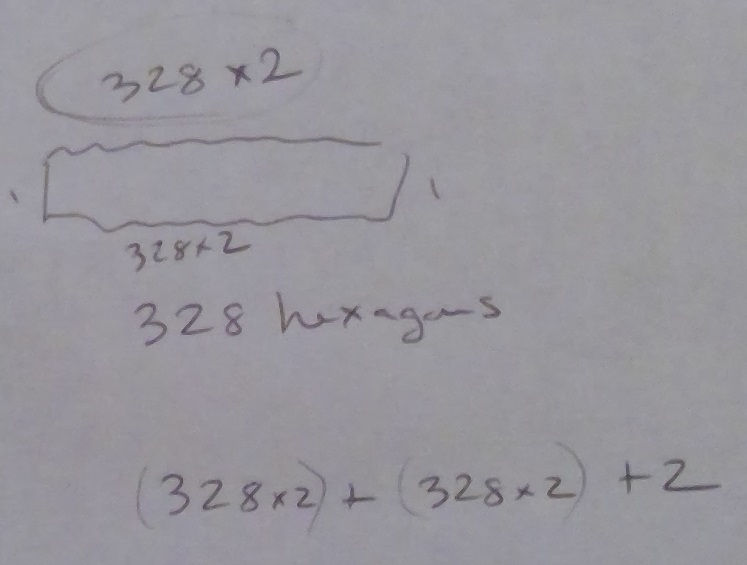 328 × 2
1 1
328×2
328 hexagons
(328×2) + (328×2) + 2